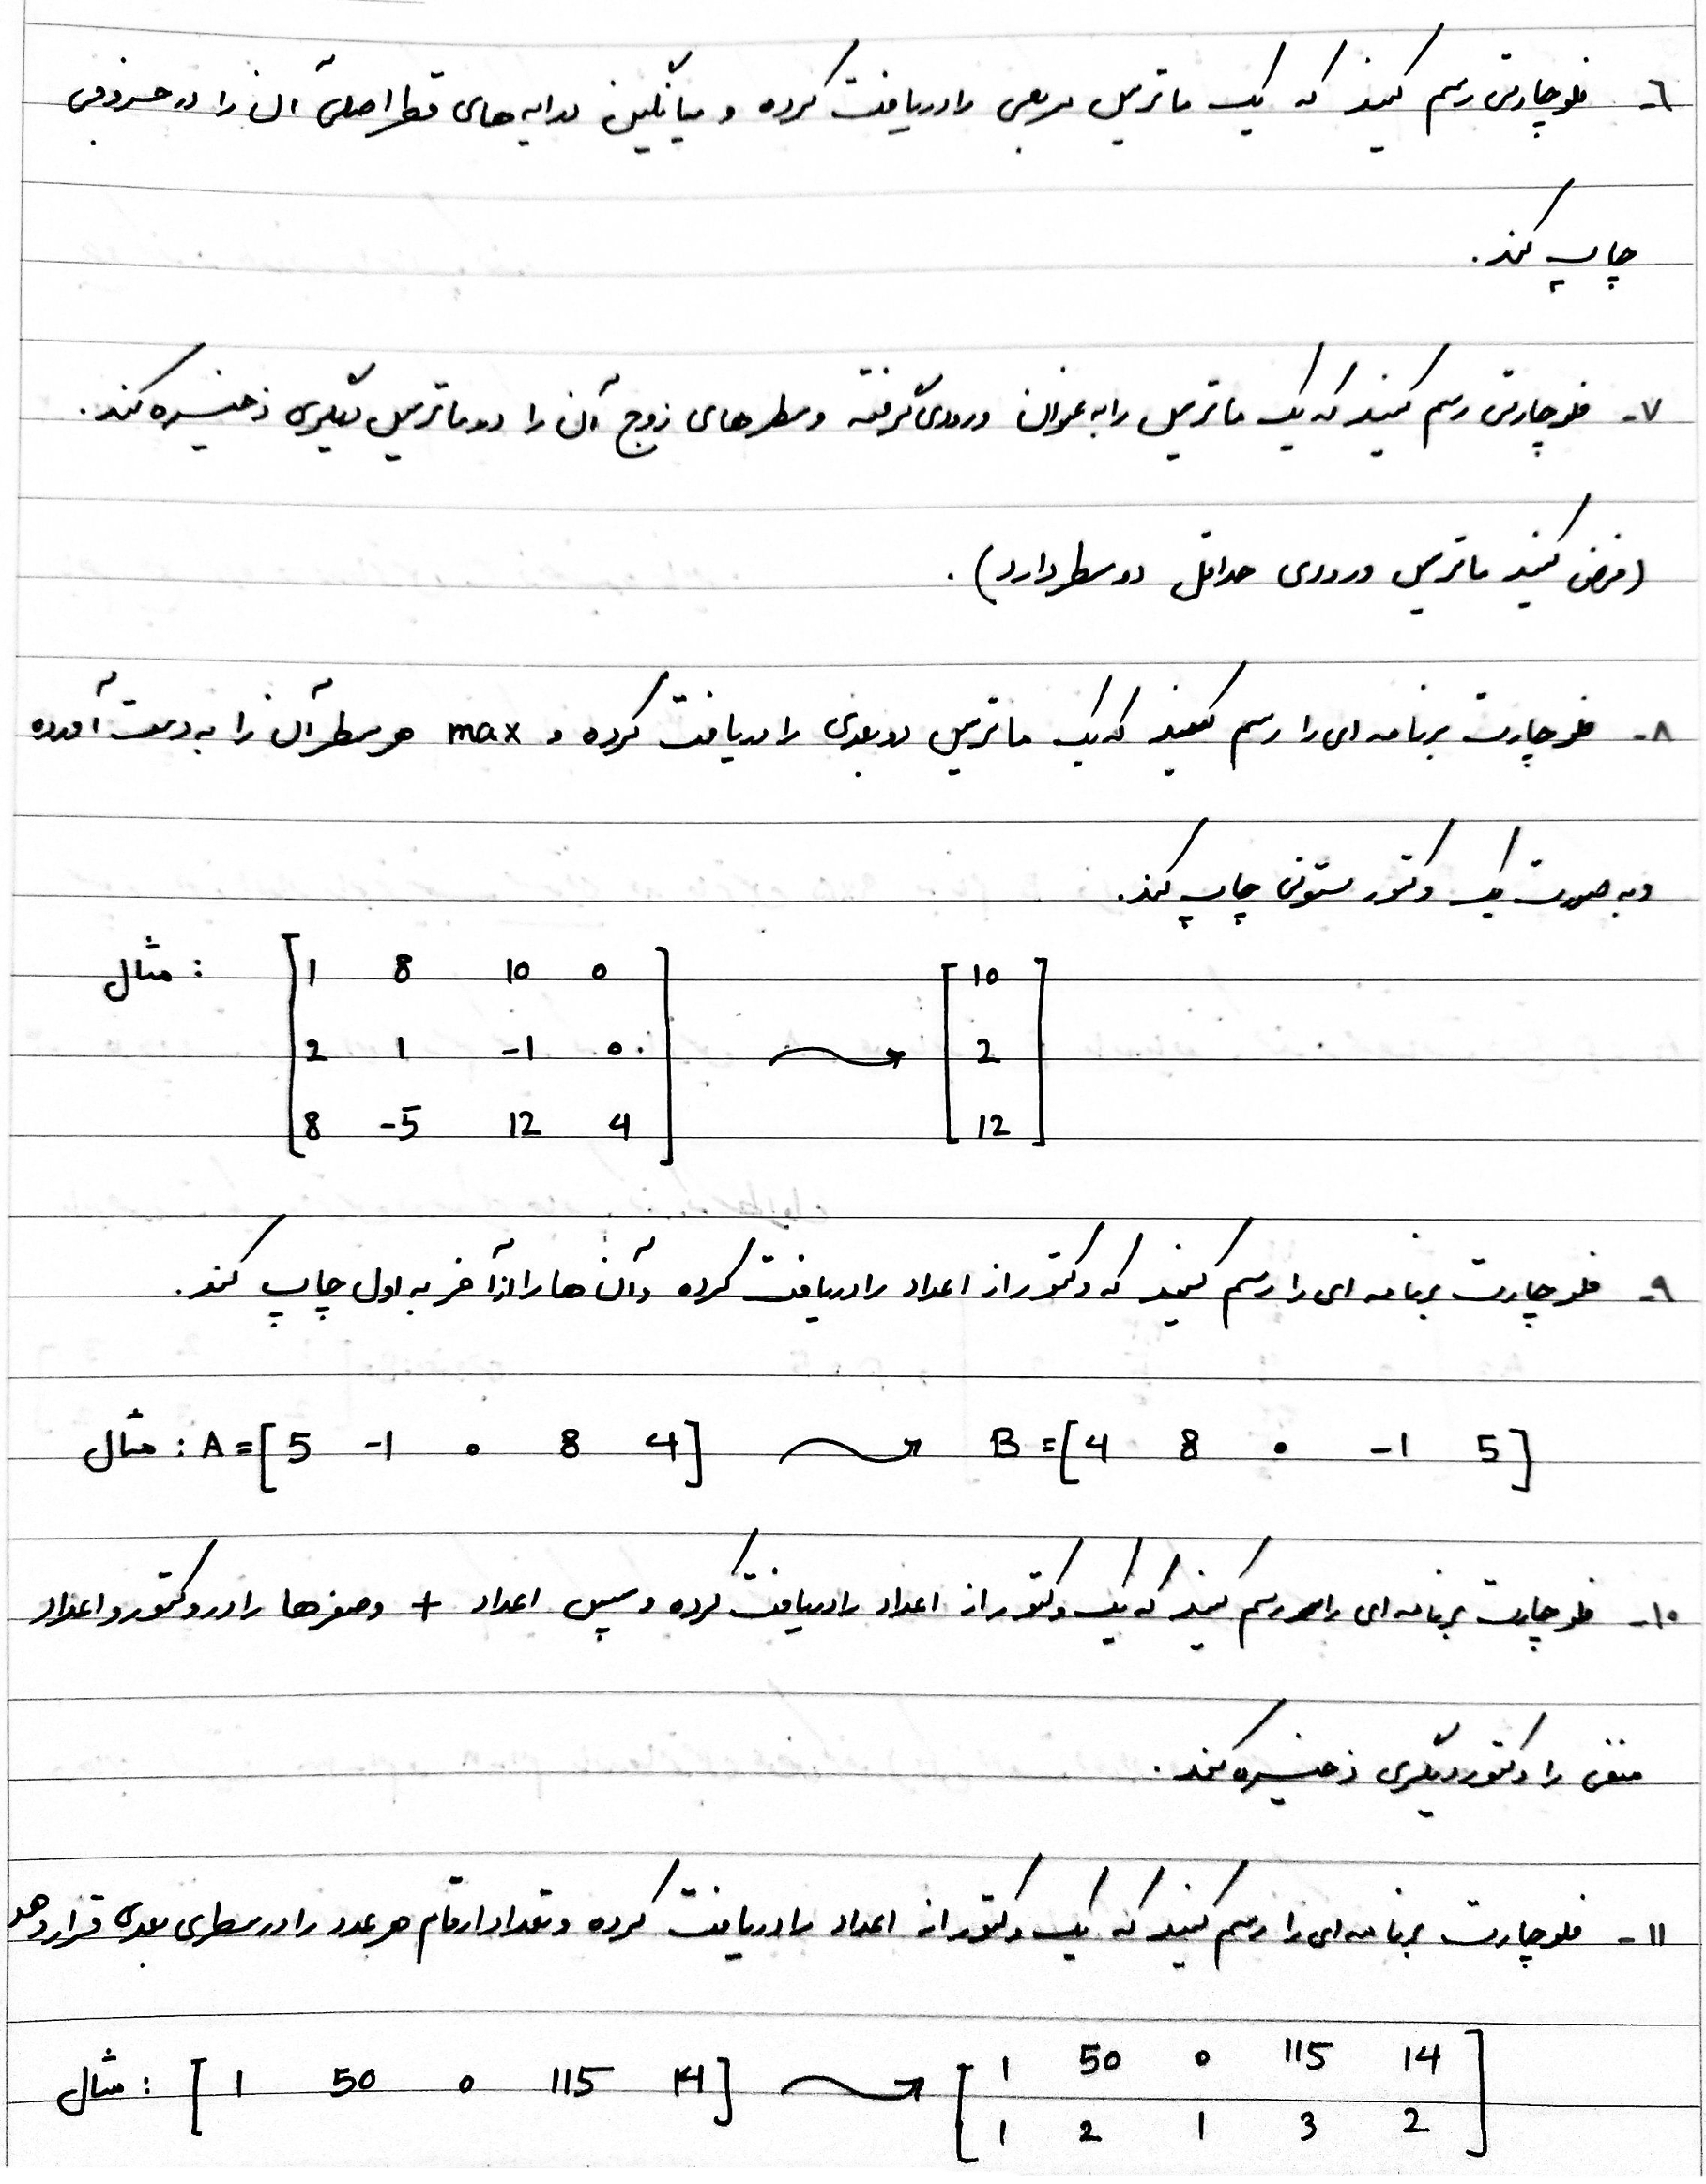 ۶- فلوچارتی رسم کنید که یک ماتریس مربعی را دریافت کرده و میانگین درایه‌های قطر اصلی آن را در خروجی
چاپ کند.
۷- فلوچارتی رسم کنید که یک ماتریس را به عنوان ورودی گرفته و سطرهای زوج آن را در ماتریس دیگری ذخیره کند.
(فرض کنید ماتریس ورودی حداقل دو سطر دارد).
۸- فلوچارت برنامه ای را رسم کنید که یک ماتریس دو بعدی را دریافت کرده و max هر سطر آن را به دست آورده
و به صورت یک وکتور ستونی چاپ کند.
مثال : [1 8 10 0 [10
2 1 -1 0 → 2
8 -5 12 4] 12]
۹- فلوچارت برنامه ای را رسم کنید که وکتور از اعداد را دریافت کرده و آن ها را از آخر به اول چاپ کند.
مثال : A = [5 -1 0 8 4] → B = [4 8 0 -1 5]
۱۰- فلوچارت برنامه ای را رسم کنید که یک وکتور از اعداد را دریافت کرده و سپس اعداد + و صفرها را در وکتور و اعداد
منفی را وکتور دیگری ذخیره کند.
۱۱- فلوچارت برنامه ای را رسم کنید که یک وکتور از اعداد را دریافت کرده و تعداد ارقام هر عدد را در سطری بعدی قرار دهد
مثال : [1 50 0 115 14] → [1 50 0 115 14
1 2 1 3 2]